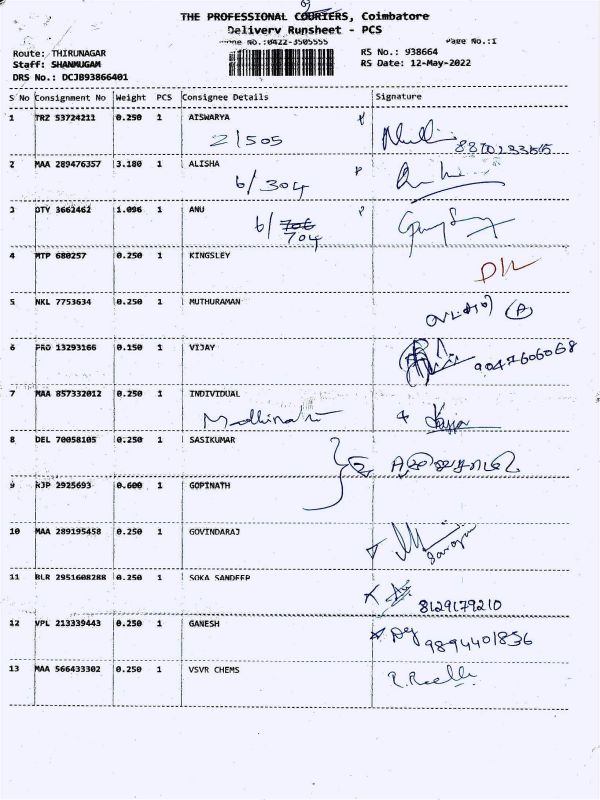 THE PROFESSIONAL COURIERS, Coimbatore
Delivery Runsheet - PCS
Phone No.:0422-3505555 Page No.:1
Route: THIRUNAGAR RS No.: 938664
Staff: SHANMUGAM RS Date: 12-May-2022
DRS No.: DCJB93866401
S No Consignment No Weight PCS Consignee Details Signature
1 TRZ 53724211 0.250 1 AISWARYA
2/505
2 MAA 289476357 3.180 1 ALISHA
6/304
3 OTY 3662462 1.096 1 ANU
6/706
704
4 MTP 680257 0.250 1 KINGSLEY
5 NKL 7753634 0.250 1 MUTHURAMAN
6 PRO 13293166 0.150 1 VIJAY
9047606068
7 MAA 857332012 0.250 1 INDIVIDUAL
8 DEL 70058105 0.250 1 SASIKUMAR
9 KJP 2925693 0.600 1 GOPINATH
10 MAA 289195458 0.250 1 GOVINDARAJ
11 BLR 2951608288 0.250 1 SOKA SANDEEP
8129179210
12 VPL 213339443 0.250 1 GANESH
9894401836
13 MAA 566433302 0.250 1 VSVR CHEMS